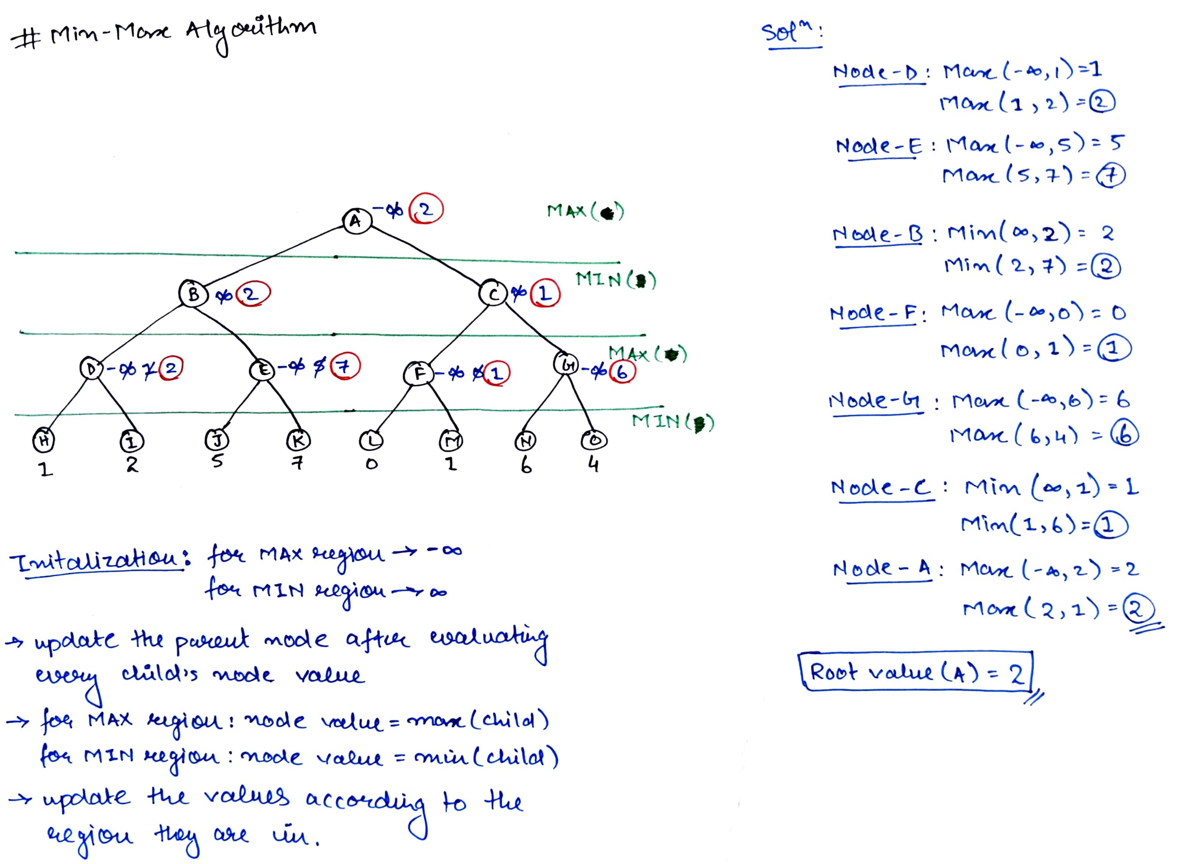 # Min-Max Algorithm
A -∞ 2 MAX( )
MIN( )
B ∞ 2 C ∞ 1
MAX( )
D -∞ 1 2 E -∞ 5 7 F -∞ 0 1 G -∞ 6
MIN( )
H I J K L M N O
1 2 5 7 0 1 6 4
Initalization: for MAX region → -∞
for MIN region → ∞
→ update the parent node after evaluating
every child's node value
→ for MAX region: node value = max(child)
for MIN region: node value = min(child)
→ update the values according to the
region they are in.
Solⁿ:
Node-D: Max(-∞,1)=1
Max(1,2)=2
Node-E: Max(-∞,5)=5
Max(5,7)=7
Node-B: Min(∞,2)=2
Min(2,7)=2
Node-F: Max(-∞,0)=0
Max(0,1)=1
Node-G: Max(-∞,6)=6
Max(6,4)=6
Node-C: Min(∞,1)=1
Min(1,6)=1
Node-A: Max(-∞,2)=2
Max(2,1)=2
Root value(A)=2